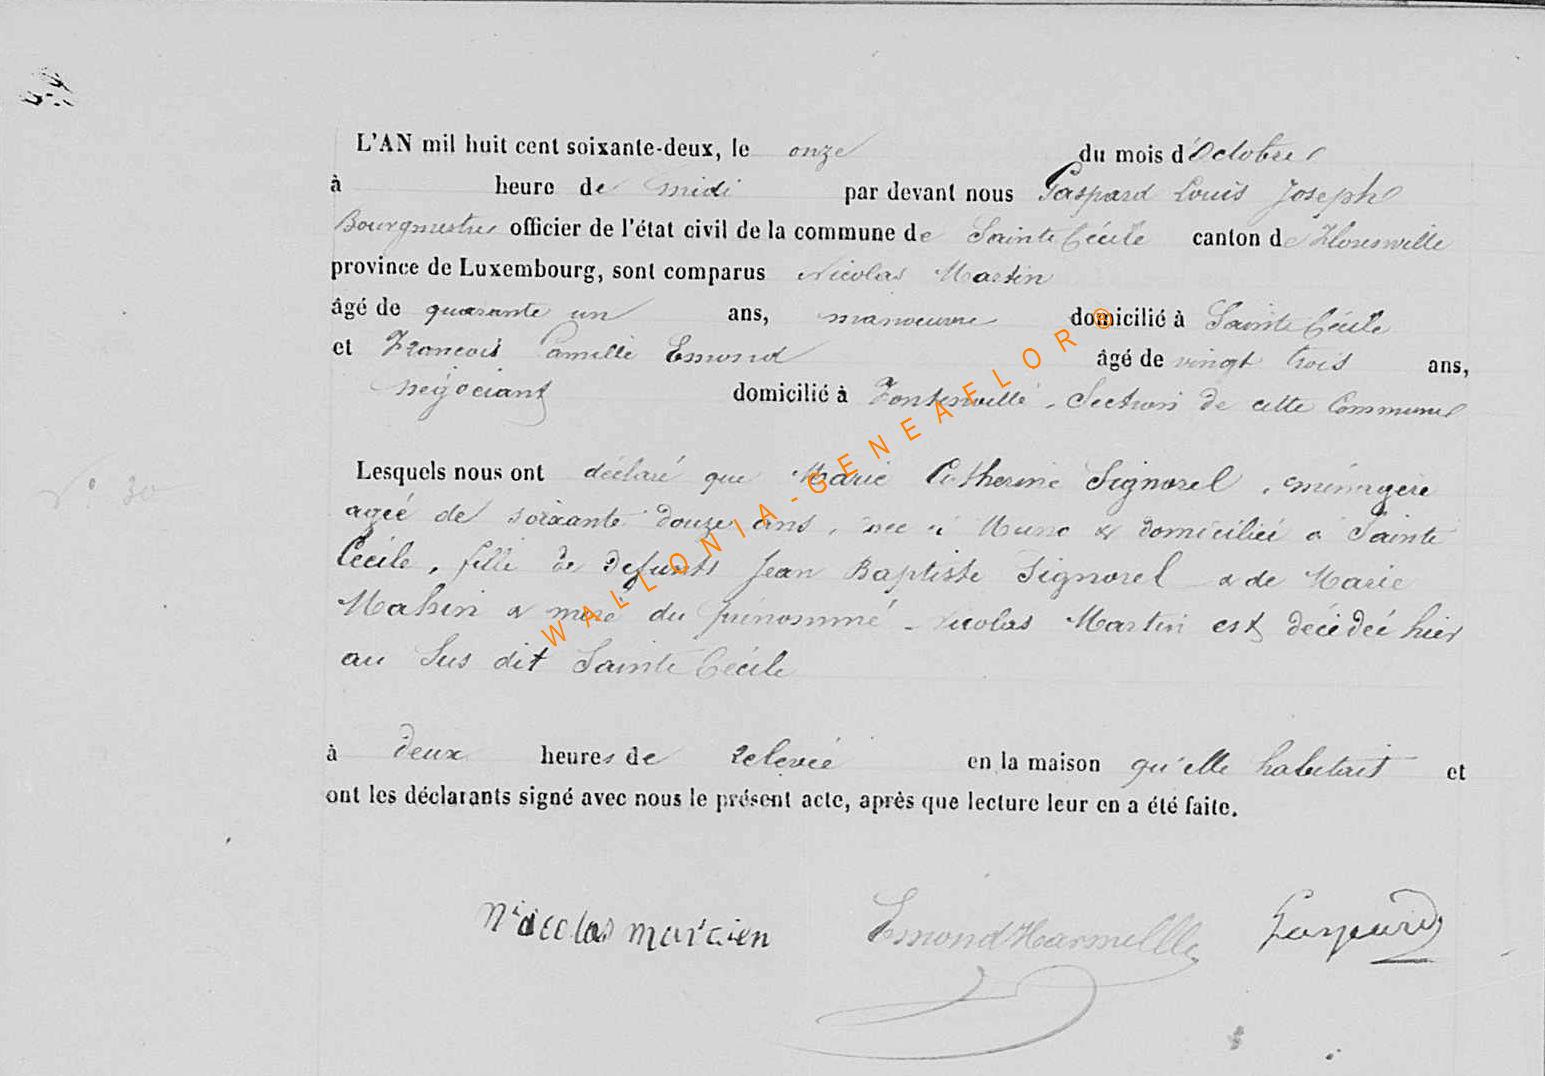 L'AN mil huit cent soixante-deux, le onze du mois d'Octobre
à heure de midi par devant nous Gaspard Louis Joseph
Bourgmestre officier de l'état civil de la commune de Sainte Cécile canton de Florenville
province de Luxembourg, sont comparus Nicolas Martin
âgé de quarante un ans, manoeuvre domicilié à Sainte Cécile
et François Camille Emond âgé de vingt trois ans,
négociant domicilié à Fontenoille, Section de cette Commune
N° 30
Lesquels nous ont déclaré que Marie Catherine Signorel, ménagère
agée de soixante douze ans, née à Muno & domiciliée à Sainte
Cécile, fille de defunts Jean Baptiste Signorel & de Marie
Mahin & mere du prénommé Nicolas Martin est décédée hier
au Sus dit Sainte Cécile
à deux heures de relevée en la maison qu'elle habitait et
ont les déclarants signé avec nous le présent acte, après que lecture leur en a été faite.
Emond Gaspard
WALLONIA-GENEAFLOR®